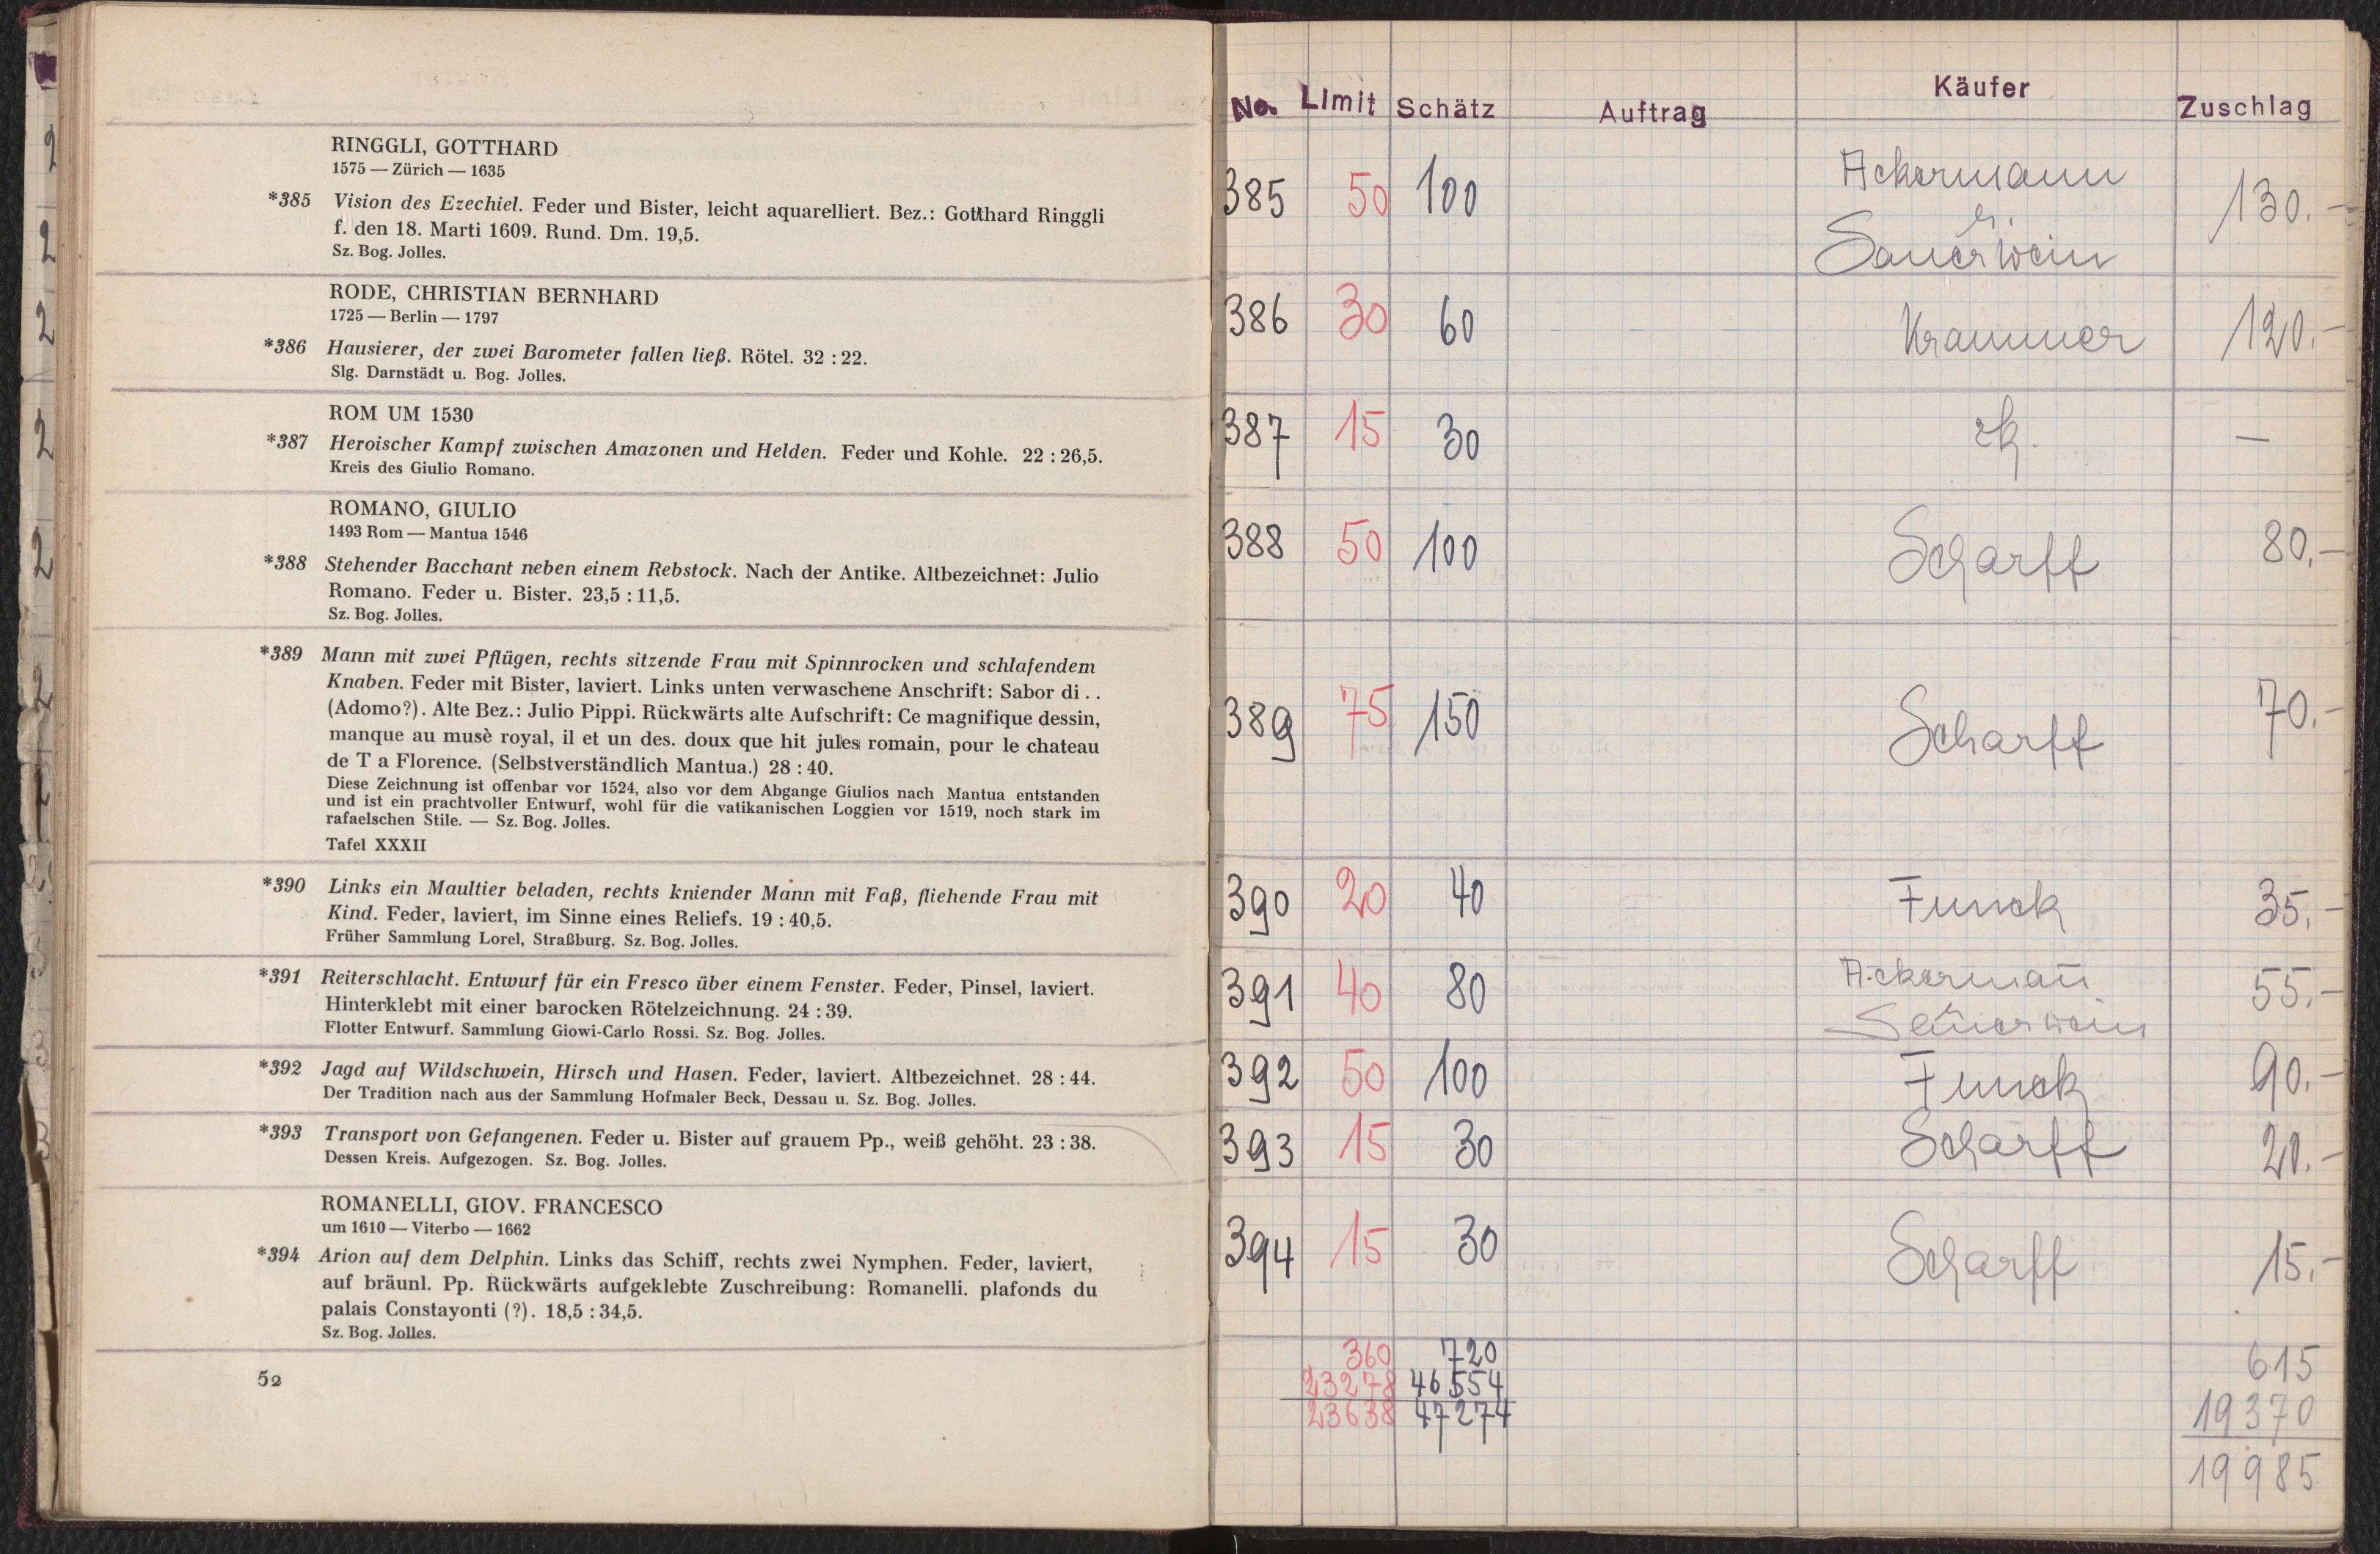 RINGGLI, GOTTHARD
1575 — Zürich — 1635
*385 Vision des Ezechiel. Feder und Bister, leicht aquarelliert. Bez.: Gotthard Ringgli
f. den 18. Marti 1609. Rund. Dm. 19,5.
Sz. Bog. Jolles.
RODE, CHRISTIAN BERNHARD
1725 — Berlin — 1797
*386 Hausierer, der zwei Barometer fallen ließ. Rötel. 32 : 22.
Slg. Darnstädt u. Bog. Jolles.
ROM UM 1530
*387 Heroischer Kampf zwischen Amazonen und Helden. Feder und Kohle. 22 : 26,5.
Kreis des Giulio Romano.
ROMANO, GIULIO
1493 Rom — Mantua 1546
*388 Stehender Bacchant neben einem Rebstock. Nach der Antike. Altbezeichnet: Julio
Romano. Feder u. Bister. 23,5 : 11,5.
Sz. Bog. Jolles.
*389 Mann mit zwei Pflügen, rechts sitzende Frau mit Spinnrocken und schlafendem
Knaben. Feder mit Bister, laviert. Links unten verwaschene Anschrift: Sabor di . .
(Adomo?). Alte Bez.: Julio Pippi. Rückwärts alte Aufschrift: Ce magnifique dessin,
manque au musè royal, il et un des. doux que hit jules romain, pour le chateau
de T a Florence. (Selbstverständlich Mantua.) 28 : 40.
Diese Zeichnung ist offenbar vor 1524, also vor dem Abgange Giulios nach Mantua entstanden
und ist ein prachtvoller Entwurf, wohl für die vatikanischen Loggien vor 1519, noch stark im
rafaelschen Stile. — Sz. Bog. Jolles.
Tafel XXXII
*390 Links ein Maultier beladen, rechts kniender Mann mit Faß, fliehende Frau mit
Kind. Feder, laviert, im Sinne eines Reliefs. 19 : 40,5.
Früher Sammlung Lorel, Straßburg. Sz. Bog. Jolles.
*391 Reiterschlacht. Entwurf für ein Fresco über einem Fenster. Feder, Pinsel, laviert.
Hinterklebt mit einer barocken Rötelzeichnung. 24 : 39.
Flotter Entwurf. Sammlung Giowi-Carlo Rossi. Sz. Bog. Jolles.
*392 Jagd auf Wildschwein, Hirsch und Hasen. Feder, laviert. Altbezeichnet. 28 : 44.
Der Tradition nach aus der Sammlung Hofmaler Beck, Dessau u. Sz. Bog. Jolles.
*393 Transport von Gefangenen. Feder u. Bister auf grauem Pp., weiß gehöht. 23 : 38.
Dessen Kreis. Aufgezogen. Sz. Bog. Jolles.
ROMANELLI, GIOV. FRANCESCO
um 1610 — Viterbo — 1662
*394 Arion auf dem Delphin. Links das Schiff, rechts zwei Nymphen. Feder, laviert,
auf bräunl. Pp. Rückwärts aufgeklebte Zuschreibung: Romanelli. plafonds du
palais Constayonti (?). 18,5 : 34,5.
Sz. Bog. Jolles.
52
No. Limit Schätz Auftrag Käufer Zuschlag
385 50 100 Ackermann 130.-
Sauerwein
386 30 60 Krammer 120.-
387 15 30 —
388 50 100 Scharff 80.-
389 75 150 Scharff 70.-
390 20 40 Funck 35.-
391 40 80 Ackermañ 55.-
Sauerwein
392 50 100 Funck 90.-
393 15 30 Scharff 20.-
394 15 30 Scharff 15.-
360 720 615
23278 46554 19370
23638 47274 19985